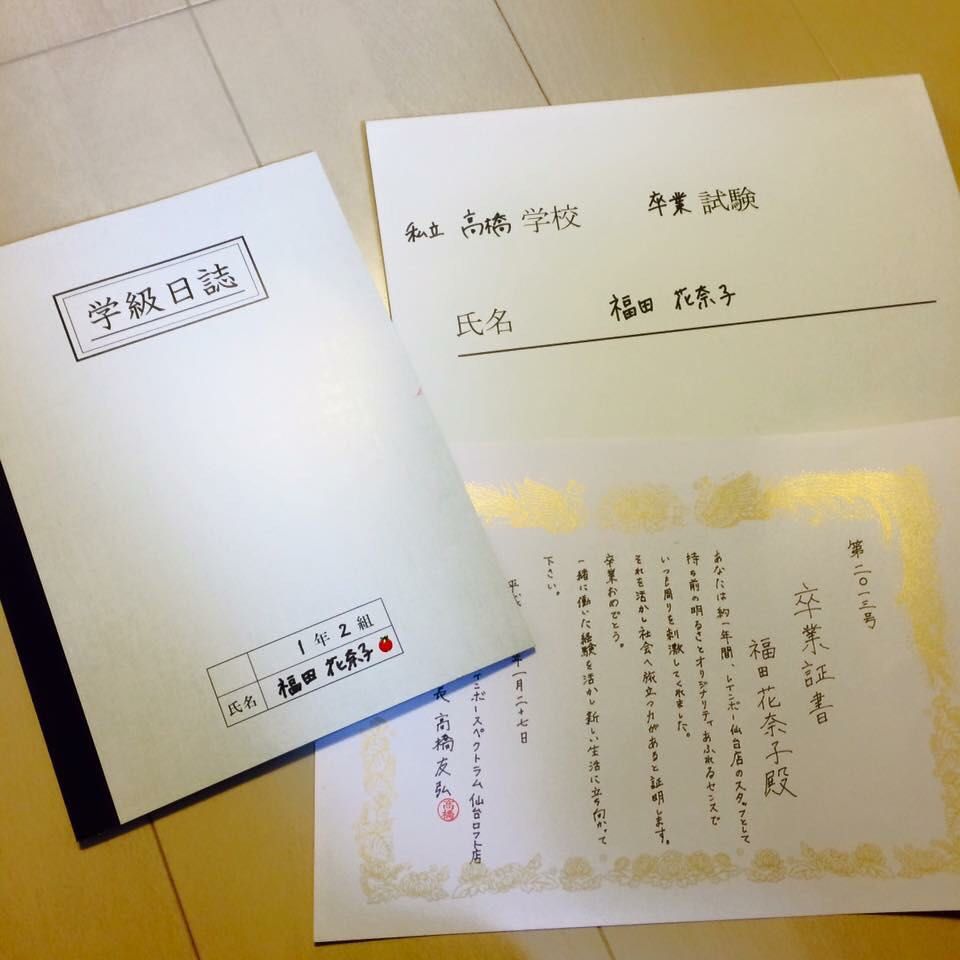 学級日誌
1年2組
氏名 福田 花奈子
私立 高橋 学校 卒業 試験
氏名 福田 花奈子
第二〇一三号
卒業証書
福田 花奈子殿
あなたは約一年間、レインボー仙台店のスタッフとして
持ち前の明るさとオリジナリティあふれるセンスで
いつも周りを刺激してくれました。
それを活かし社会へ旅立つ力があると証明します。
卒業おめでとう。
一緒に働いた経験を活かし新しい生活に立ち向かって
下さい。
年一月二十七日
インボースペクトラム 仙台ロフト店
高橋友弘
高橋